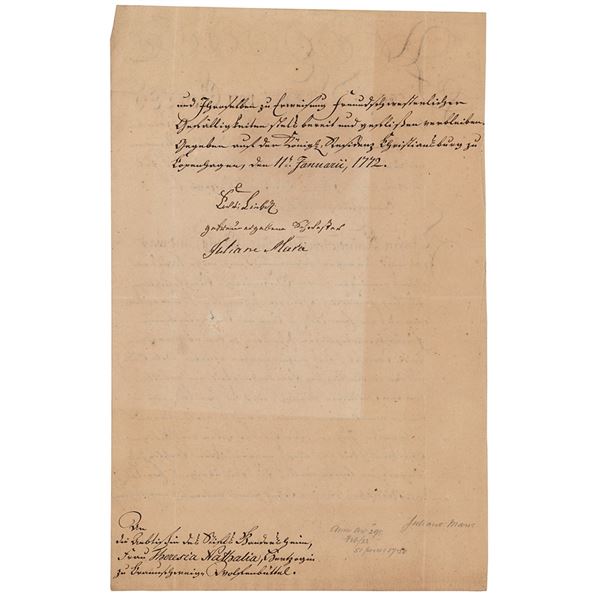 und Ihroselben zu Erweisung Freundschwesterlicher
Gefälligkeiten stets bereit und geflißen verbleiben.
Gegeben auf der Königl. Residenz Christiansburg zu
Copenhagen, den 11t. Januarii, 1772.
getreuergebene Schwester
Juliane Maria
An
die Aebtißin des Stifts Gandersheim,
Frau Theresia Nathalia, Hertzogin
zu Braunschweig-Wolfenbüttel.
Juliane Marie